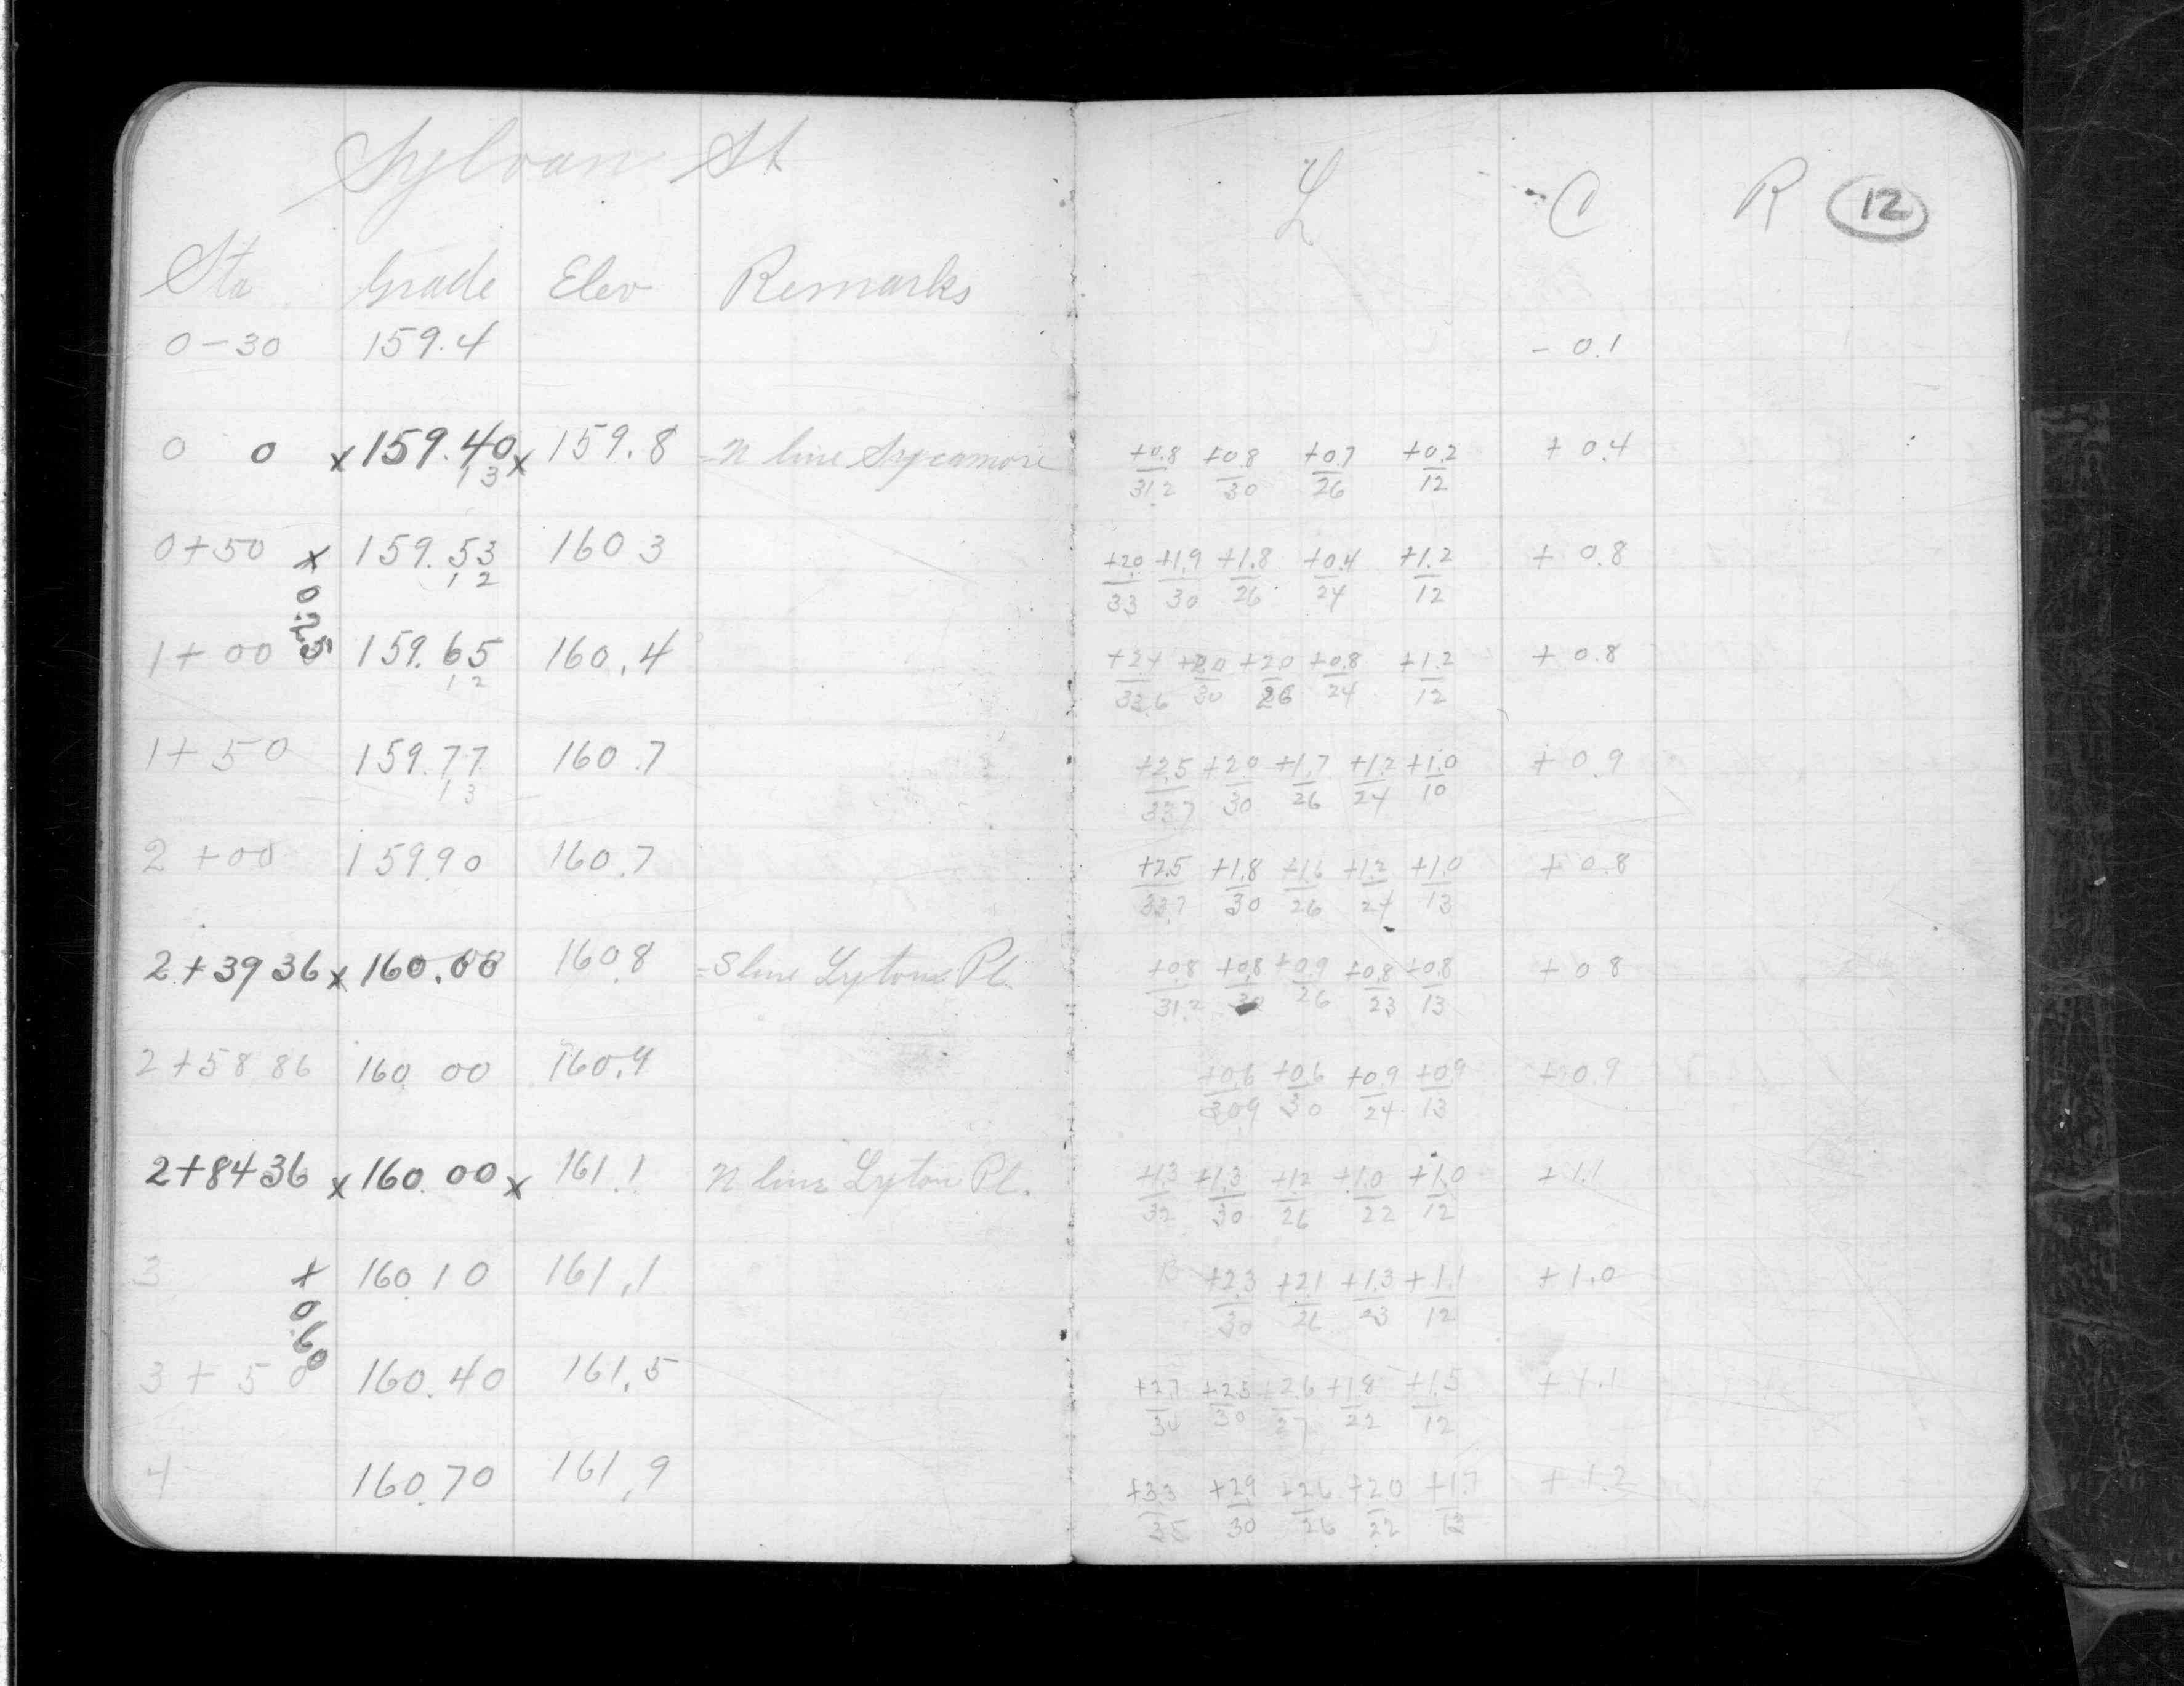 Sylvan St
L C R 12
Sta Grade Elev Remarks
0-30 159.4 - 0.1
0 0 x 159.40 x 159.8 = N line Sycamore +0.8/31.2 +0.8/30 +0.7/26 +0.2/12 + 0.4
13
0+50 x 159.53 160 3 +2.0/33 +1.9/30 +1.8/26 +0.4/24 +1.2/12 + 0.8
12
0.25
1+00 159.65 160.4 +2.4/33.6 +2.0/30 +2.0/26 +0.8/24 +1.2/12 + 0.8
12
1+50 159.77 160.7 +2.5/33.7 +2.0/30 +1.7/26 +1.2/24 +1.0/10 + 0.9
13
2+00 159.90 160.7 +2.5/33.7 +1.8/30 +1.6/26 +1.2/24 +1.0/13 + 0.8
2+39 36 x 160.00 160.8 = S line Lytona Pl. +0.8/31.2 +0.8/30 +0.9/26 +0.8/23 +0.8/13 + 0 8
2+58 86 160 00 160.9 +0.6/30.9 +0.6/30 +0.9/24 +0.9/13 + 0.9
2+84 36 x 160 00 x 161.1 N line Lyton Pl. +1.3/32 +1.3/30 +1.2/26 +1.0/22 +1.0/12 + 1.1
3 + 160.10 161.1 +2.3/30 +2.1/26 +1.3/23 +1.1/12 + 1.0
0.60
3+50 160.40 161.5 +2.7/34 +2.5/30 +2.6/27 +1.8/22 +1.5/12 + 1.1
4 160.70 161.9 +3.3/35 +2.9/30 +2.6/26 +2.0/22 +1.7/13 + 1.2